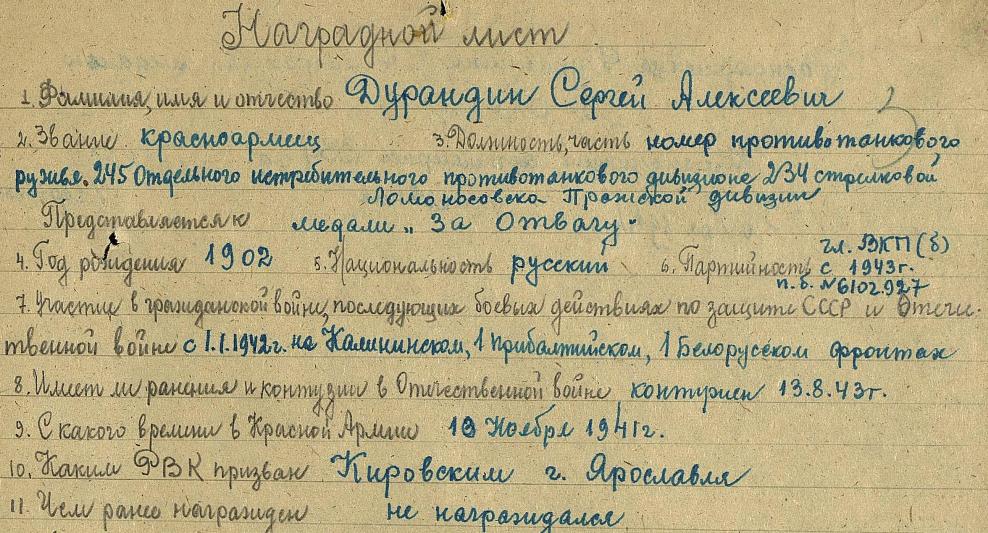 Наградной лист
1. Фамилия, имя и отчество Дурандин Сергей Алексеевич
2. Звание красноармеец 3. Должность, часть номер противотанкового
ружья. 245 Отдельного истребительного противотанкового дивизиона 234 стрелковой
Ломоносовско Пражской дивизии
Представляется к медали „За Отвагу"
4. Год рождения 1902 5. Национальность русский 6. Партийность чл. ВКП(б)
с 1943г.
п.б. №6102927
7. Участие в гражданской войне, последующих боевых действиях по защите СССР и Отече-
ственной войне с 1.1.1942г. на Калининском, 1 Прибалтийском, 1 Белорусском фронтах
8. Имеет ли ранения и контузии в Отечественной войне контужен 13.8.43г.
9. С какого времени в Красной Армии 10 Ноября 1941г.
10. Каким РВК призван Кировским г. Ярославля
11. Чем ранее награжден не награждался